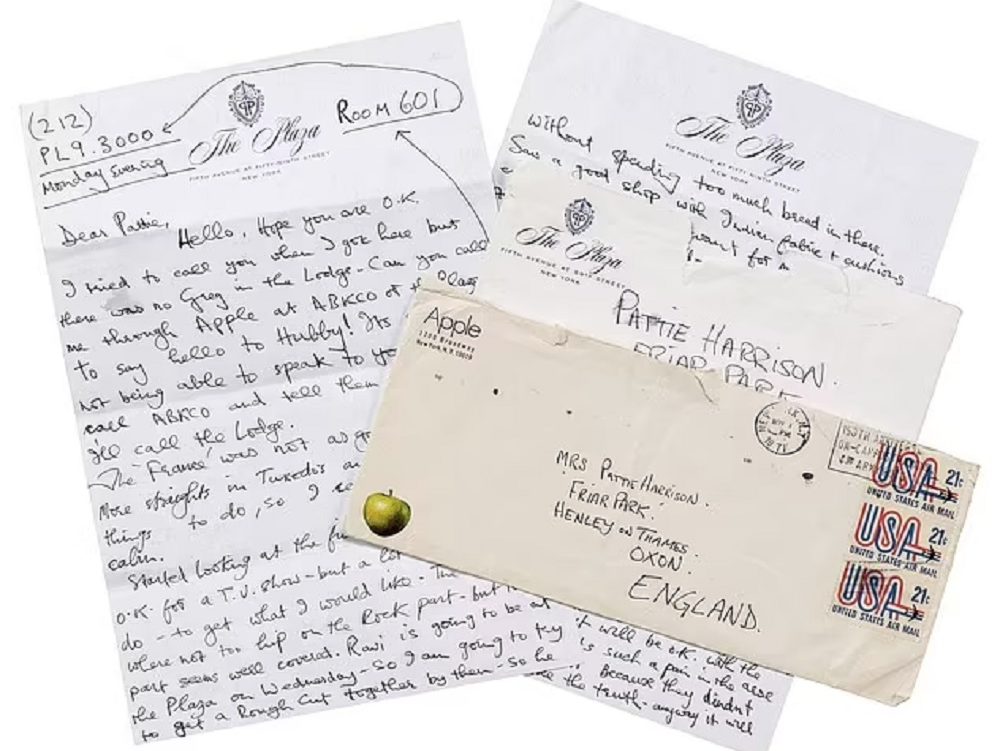 (212)
PL9.3000
Monday evening
ROOM 601
The Plaza
FIFTH AVENUE AT FIFTY-NINTH STREET
NEW YORK
Dear Pattie, Hello, Hope you are O.K.
I tried to call you when I got here but
there was no Greg in the Lodge - Can you call
me through Apple at ABKCO or the Plaza
to say hello to Hubby! Its
not being able to speak to yo
call ABKCO and tell them
I'll call the Lodge.
The 'France' was not as go
More straights in Tuxedos an
things to do, so I
calm.
Started looking at the
O.K. for a T.V. show - but a lot
do - to get what I would like - The
where not too hip on the Rock part - but
part seems well covered. Ravi is going to be at
the Plaza on Wednesday - So I am going to try
to get a Rough Cut together by then - so he
The Plaza
FIFTH AVENUE AT FIFTY-NINTH STREET
NEW YORK
without spending too much bread in there.
Saw a good shop with Indian fabric + cushions
want for
it will be O.K. with the
is such a pain in the arse
Because they didn't
the truth - anyway it will
The Plaza
FIFTH AVENUE AT 59TH STREET
NEW YORK
PATTIE HARRISON.
FRIAR PARK
Apple
New York, N.Y. 10019
MRS PATTIE HARRISON.
FRIAR PARK.
HENLEY ON THAMES.
OXON.
ENGLAND.
USA 21c
UNITED STATES AIR MAIL
USA 21c
UNITED STATES AIR MAIL
USA 21c
UNITED STATES AIR MAIL